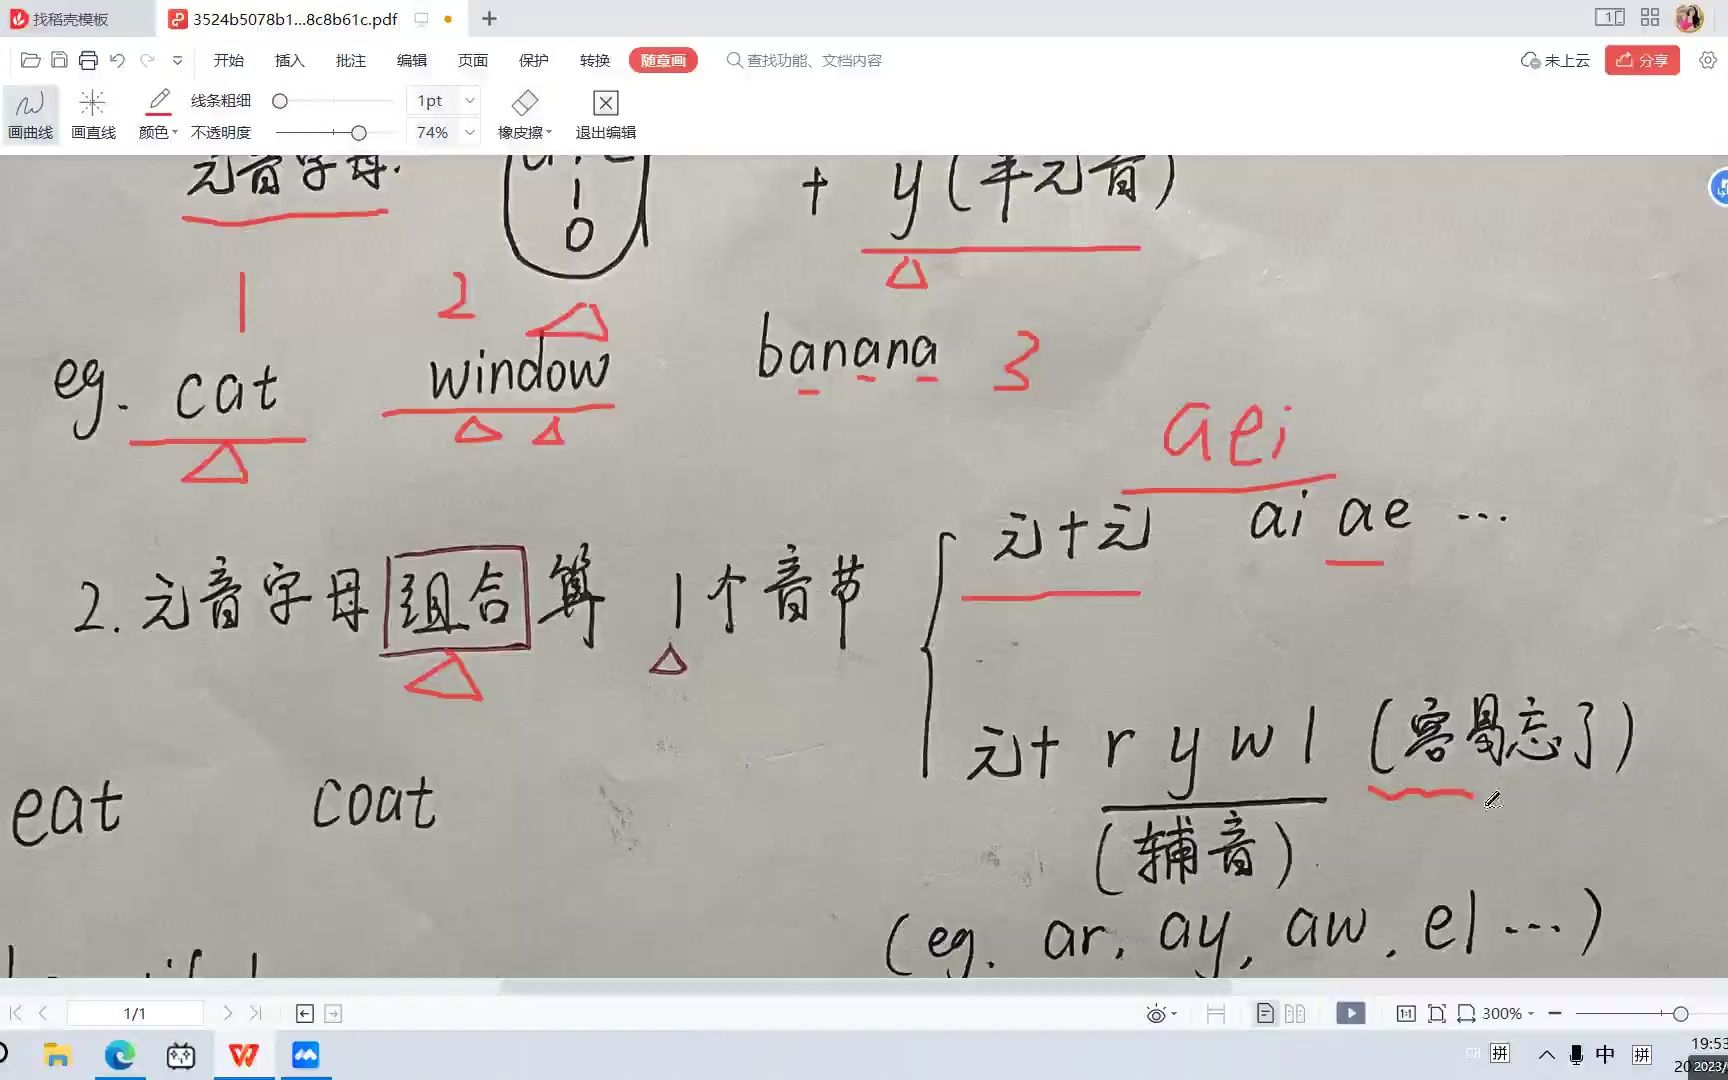 找稻壳模板 3524b5078b1...8c8b61c.pdf
开始 插入 批注 编辑 页面 保护 转换 随意画 查找功能、文档内容 未上云 分享
画曲线 画直线 颜色 线条粗细 1pt 橡皮擦 退出编辑
不透明度 74%
元音字母. i o + y (半元音)
1 2
eg. cat window banana 3
aei
元+元 ai ae ...
2. 元音字母组合算 1个音节
元+ r y w l (容易忘了)
eat coat
(辅音)
(eg. ar, ay, aw, el ...)
1/1 300%
中 拼 19:53